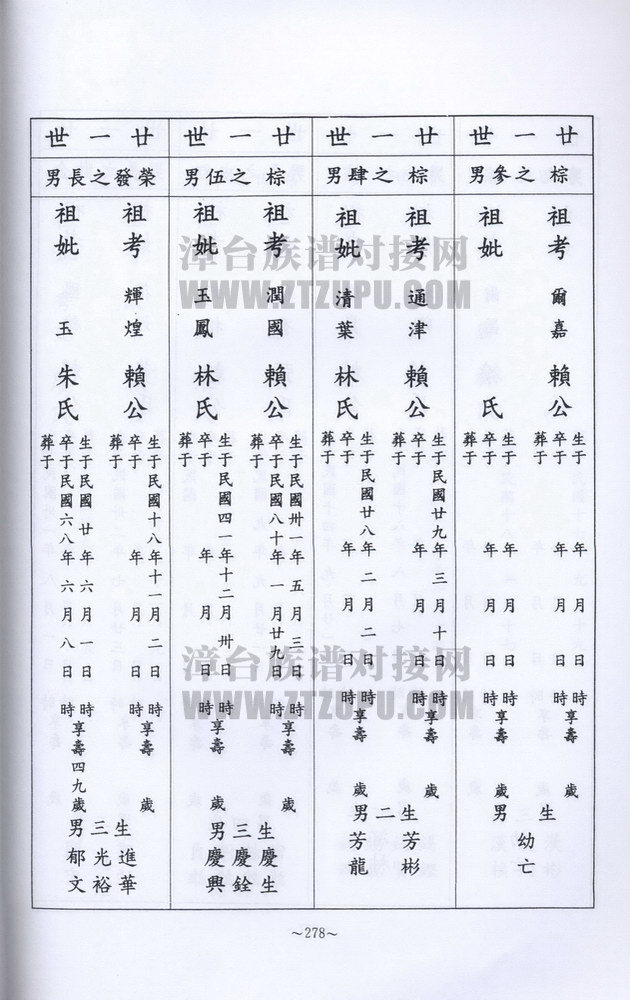 廿一世
棕之參男
祖考 爾嘉 賴公
生于 年 月 日 時享壽 歲
卒于 年 月 日 時
葬于
祖妣 氏
生于 年 月 日 時享壽 歲
卒于 年 月 日 時
葬于
生男
幼亡
廿一世
棕之肆男
祖考 通津 賴公
生于民國廿九年三月十日 時享壽 歲
卒于 年 月 日 時
葬于
祖妣 清葉 林氏
生于民國廿八年二月二日 時享壽 歲
卒于 年 月 日 時
葬于
生二男
芳彬
芳龍
廿一世
棕之伍男
祖考 潤國 賴公
生于民國卅一年五月三日 時享壽 歲
卒于民國八十年一月廿九日 時
葬于
祖妣 玉鳳 林氏
生于民國四一年十二月卅日 時享壽 歲
卒于 年 月 日 時
葬于
生三男
慶生
慶銓
慶興
廿一世
榮發之長男
祖考 輝煌 賴公
生于民國十八年十一月二日 時享壽 歲
卒于 年 月 日 時
葬于
祖妣 玉 朱氏
生于民國廿年六月一日 時享壽四九歲
卒于民國六八年六月八日 時
葬于
生三男
進華
光裕
郁文
~278~
漳台族谱对接网
WWW.ZTZUPU.COM
漳台族谱对接网
WWW.ZTZUPU.COM